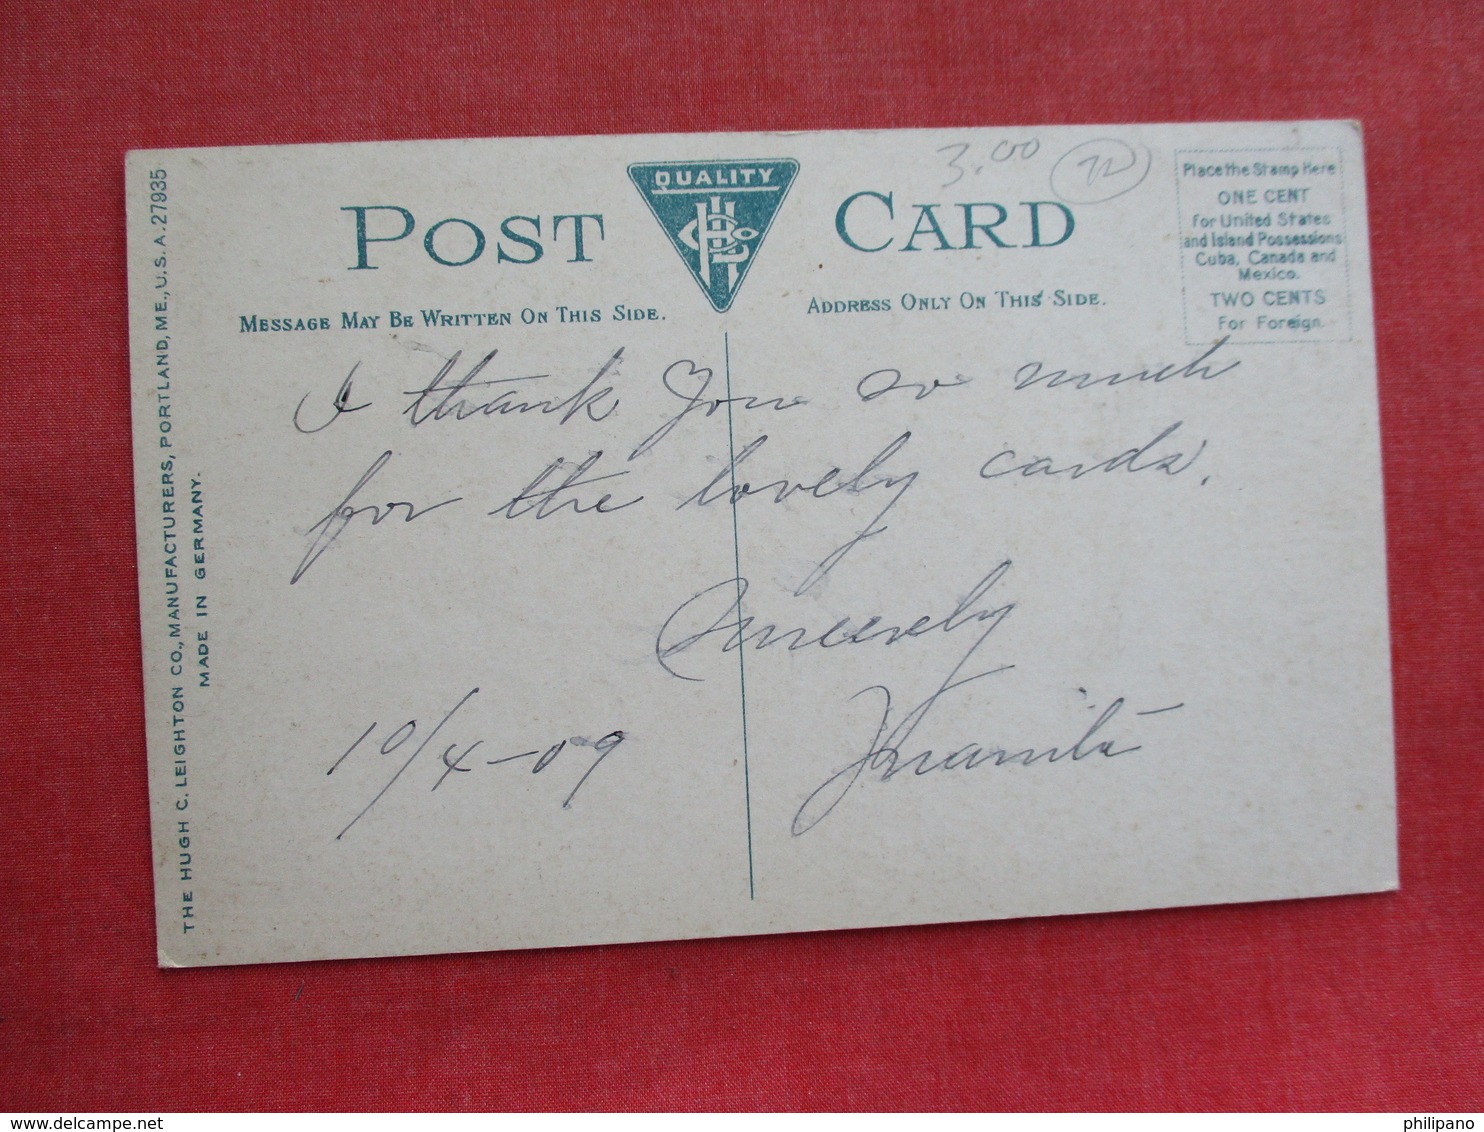 3.00
QUALITY
POST CARD
MESSAGE MAY BE WRITTEN ON THIS SIDE.
ADDRESS ONLY ON THIS SIDE.
Place the Stamp Here
ONE CENT
For United States
and Island Possessions
Cuba, Canada and
Mexico.
TWO CENTS
For Foreign.
I thank you so much
for the lovely cards.
Sincerely
Juanita
10/4-09
THE HUGH C. LEIGHTON CO., MANUFACTURERS, PORTLAND, ME., U.S.A. 27935
MADE IN GERMANY.
delcampe.net
philipano